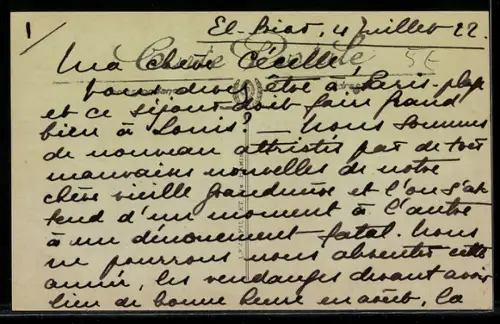 1/
El-Biar, 4 Juillet 22.
Ma chère Cécile,
Vous devez être à Paris-plage
et ce séjour doit faire grand
bien à Louis? — Nous sommes
de nouveau attristés par de très
mauvaises nouvelles de notre
chère vieille grandmère et l'on s'at
tend d'un moment à l'autre
à un dénouement fatal. Nous
ne pourrons nous absenter cette
année, les vendanges devant avoir
lieu de bonne heure en août, la